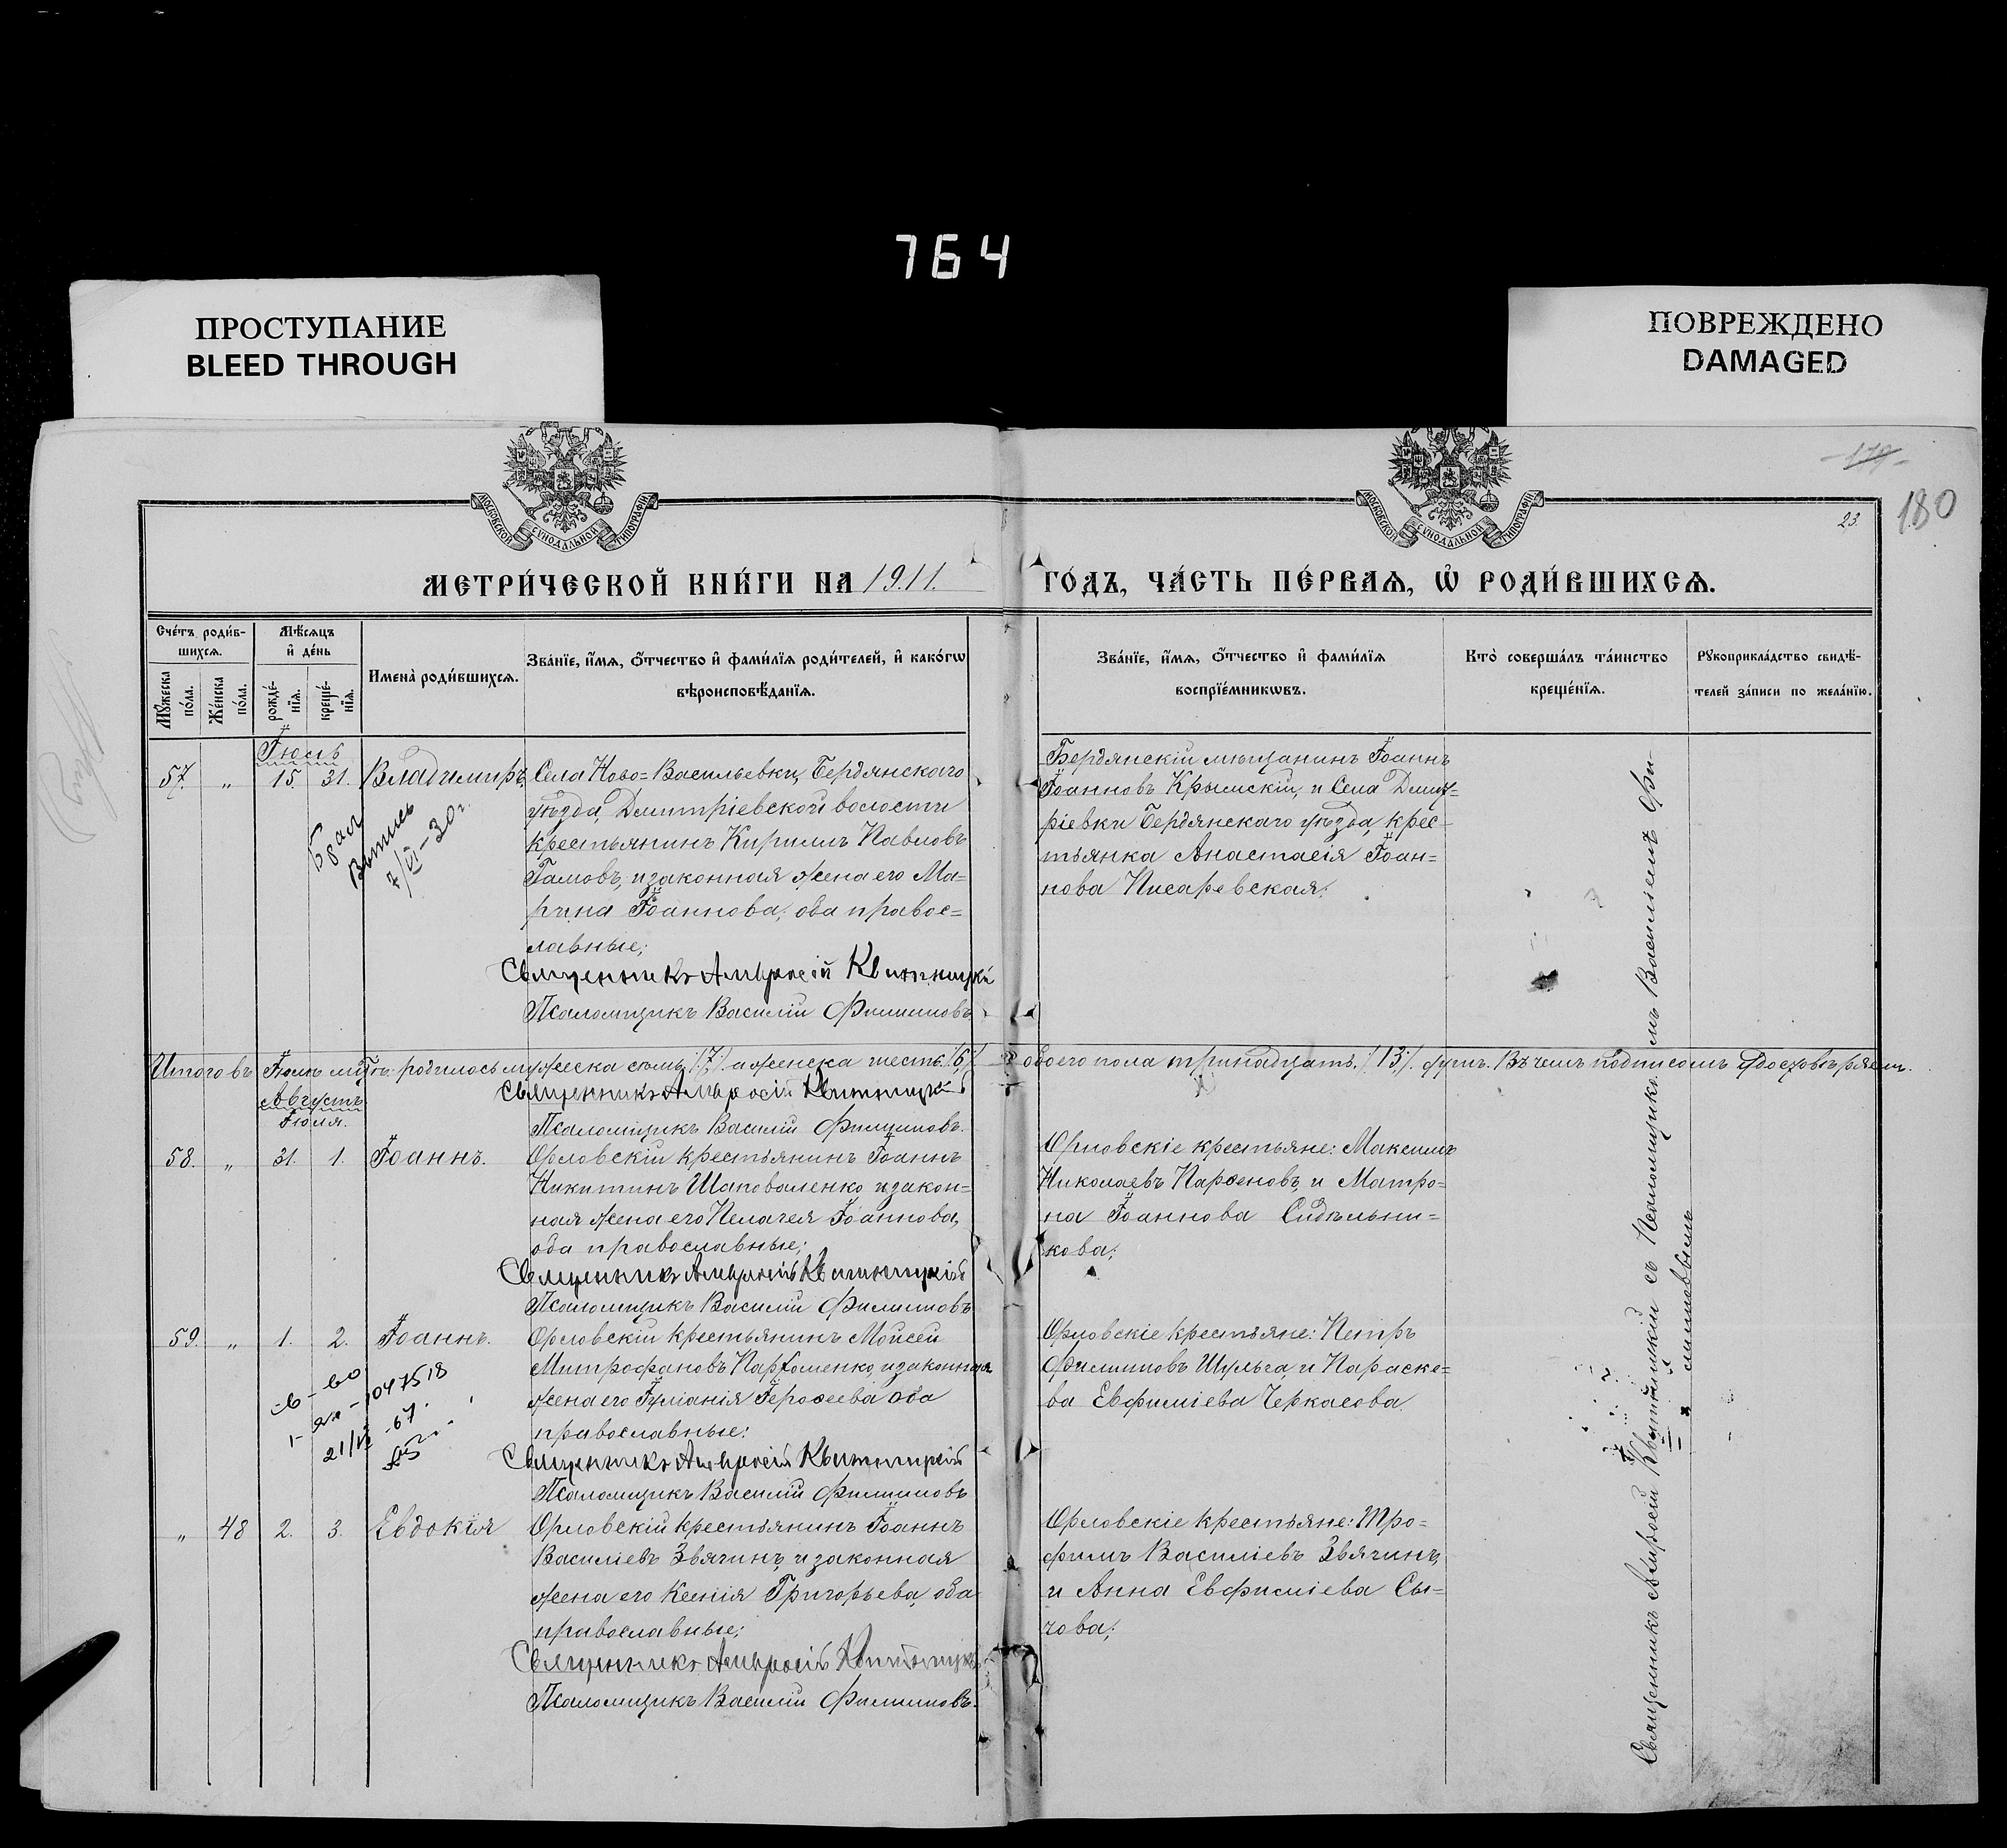 764
ПРОСТУПАНИЕ
BLEED THROUGH
ПОВРЕЖДЕНО
DAMAGED
МОСКОВСКОЙ СѴНОДАЛЬНОЙ ТИПОГРАФІИ
МОСКОВСКОЙ СѴНОДАЛЬНОЙ ТИПОГРАФІИ
179
180
23.
МЕТРИ́ЧЕСКОЙ КНИ́ГИ НА 1911.
ГО́ДЪ, ЧА́СТЬ ПЕ́РВАѦ, Ѡ҆ РОДИ́ВШИХСѦ.
Сче́тъ роди́в-
шихсѧ.
Мꙋ́жеска по́ла.
Же́нска по́ла.
Мѣ́сѧцъ
и҆ де́нь
рожде́-
нїѧ.
креще́-
нїѧ.
Имена̀ роди́вшихсѧ.
Зва́нїе, и҆́мѧ, ѻ҆́тчество и҆ фами́лїѧ роди́телей, и҆ како́гѡ
вѣроисповѣ́данїѧ.
Зва́нїе, и҆́мѧ, ѻ҆́тчество и҆ фами́лїѧ
воспрїе́мникѡвъ.
Кто̀ соверша́лъ та́инство
креще́нїѧ.
Рꙋкоприкла́дство свидѣ́-
телей за́писи по жела́нїю.
Іюль
57. „ 15. 31. Владимиръ,
Села Ново=Васильевки, Бердянскаго
уѣзда, Дмитріевской волости
крестьянинъ Кириллъ Павловъ
Гамовъ, и законная жена его Ма=
рина Іоаннова, оба правос=
лавные;
Священникъ Амвросій Квитницкій
Псаломщикъ Василій Филипповъ
Выпись
7/VI-30г
Бердянскій мѣщанинъ Іоаннъ
Іоанновъ Крымскій, и Села Дмит=
ріевки Бердянскаго уѣзда, крес=
тьянка Анастасія Іоан=
нова Писаревская.
Итого въ Іюлѣ мцѣ: родилось мужеска семь /7/. а женска шесть /6/
обоего пола тринадцать. /13/. душъ. Въ чемъ подписомъ удостовѣряемъ.
Священникъ Амвросій Квитницкій
Псаломщикъ Василій Филипповъ.
Августъ
Іюля.
58. „ 31. 1. Іоаннъ.
Орловскій крестьянинъ Іоаннъ
Никитинъ Шаповаленко, и закон=
ная жена его Пелагея Іоаннова,
оба православные;
Священникъ Амвросій Квитницкій
Псаломщикъ Василій Филипповъ
Орловскіе крестьяне: Максимъ
Николаевъ Парѳеновъ, и Матро=
на Іоаннова Сидѣльни=
кова;
59. „ 1. 2. Іоаннъ.
Орловскій крестьянинъ Моисей
Митрофановъ Пархоменко, и законная
жена его Іуліанія Іероѳеева оба
православные:
Священникъ Амвросій Квитницкій
Псаломщикъ Василій Филипповъ
1047518
21/VI -67.
Орловскіе крестьяне: Петръ
Филипповъ Шульга, и Параске=
ва Евфиміева Черкасова.
„ 48 2. 3. Евдокія
Орловскій крестьянинъ Іоаннъ
Василіевъ Звягинъ, и законная
жена его Ксенія Григорьева, оба
православные;
Священникъ Амвросій Квитницкій
Псаломщикъ Василій Филипповъ.
Орловскіе крестьяне: Тро=
фимъ Василіевъ Звягинъ,
и Анна Евфиміева Сы=
чова;
Священникъ Амвросій Квитницкій съ Псаломщикомъ Василіемъ Фи-
липповымъ